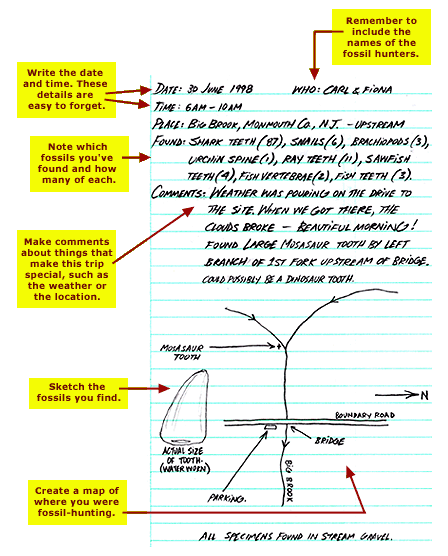 Remember to
include the
names of the
fossil hunters.
Write the date
and time. These
details are
easy to forget.
DATE: 30 JUNE 1998 WHO: CARL & FIONA
TIME: 6AM - 10AM
PLACE: BIG BROOK, MONMOUTH CO., N.J. - UPSTREAM
Note which
fossils you've
found and how
many of each.
FOUND: SHARK TEETH (87), SNAILS (6), BRACHIOPODS (3),
URCHIN SPINE (1), RAY TEETH (11), SAWFISH
TEETH (9), FISH VERTEBRAE (2), FISH TEETH (3).
COMMENTS: WEATHER WAS POURING ON THE DRIVE TO
THE SITE. WHEN WE GOT THERE, THE
CLOUDS BROKE - BEAUTIFUL MORNING!
FOUND LARGE MOSASAUR TOOTH BY LEFT
BRANCH OF 1ST FORK UPSTREAM OF BRIDGE.
COULD POSSIBLY BE A DINOSAUR TOOTH.
Make comments
about things that
make this trip
special, such as
the weather or
the location.
MOSASAUR
TOOTH
Sketch the
fossils you find.
N
BOUNDARY ROAD
BRIDGE
ACTUAL SIZE
OF TOOTH.
(WATER WORN)
PARKING.
BIG BROOK
Create a map of
where you were
fossil-hunting.
ALL SPECIMENS FOUND IN STREAM GRAVEL.